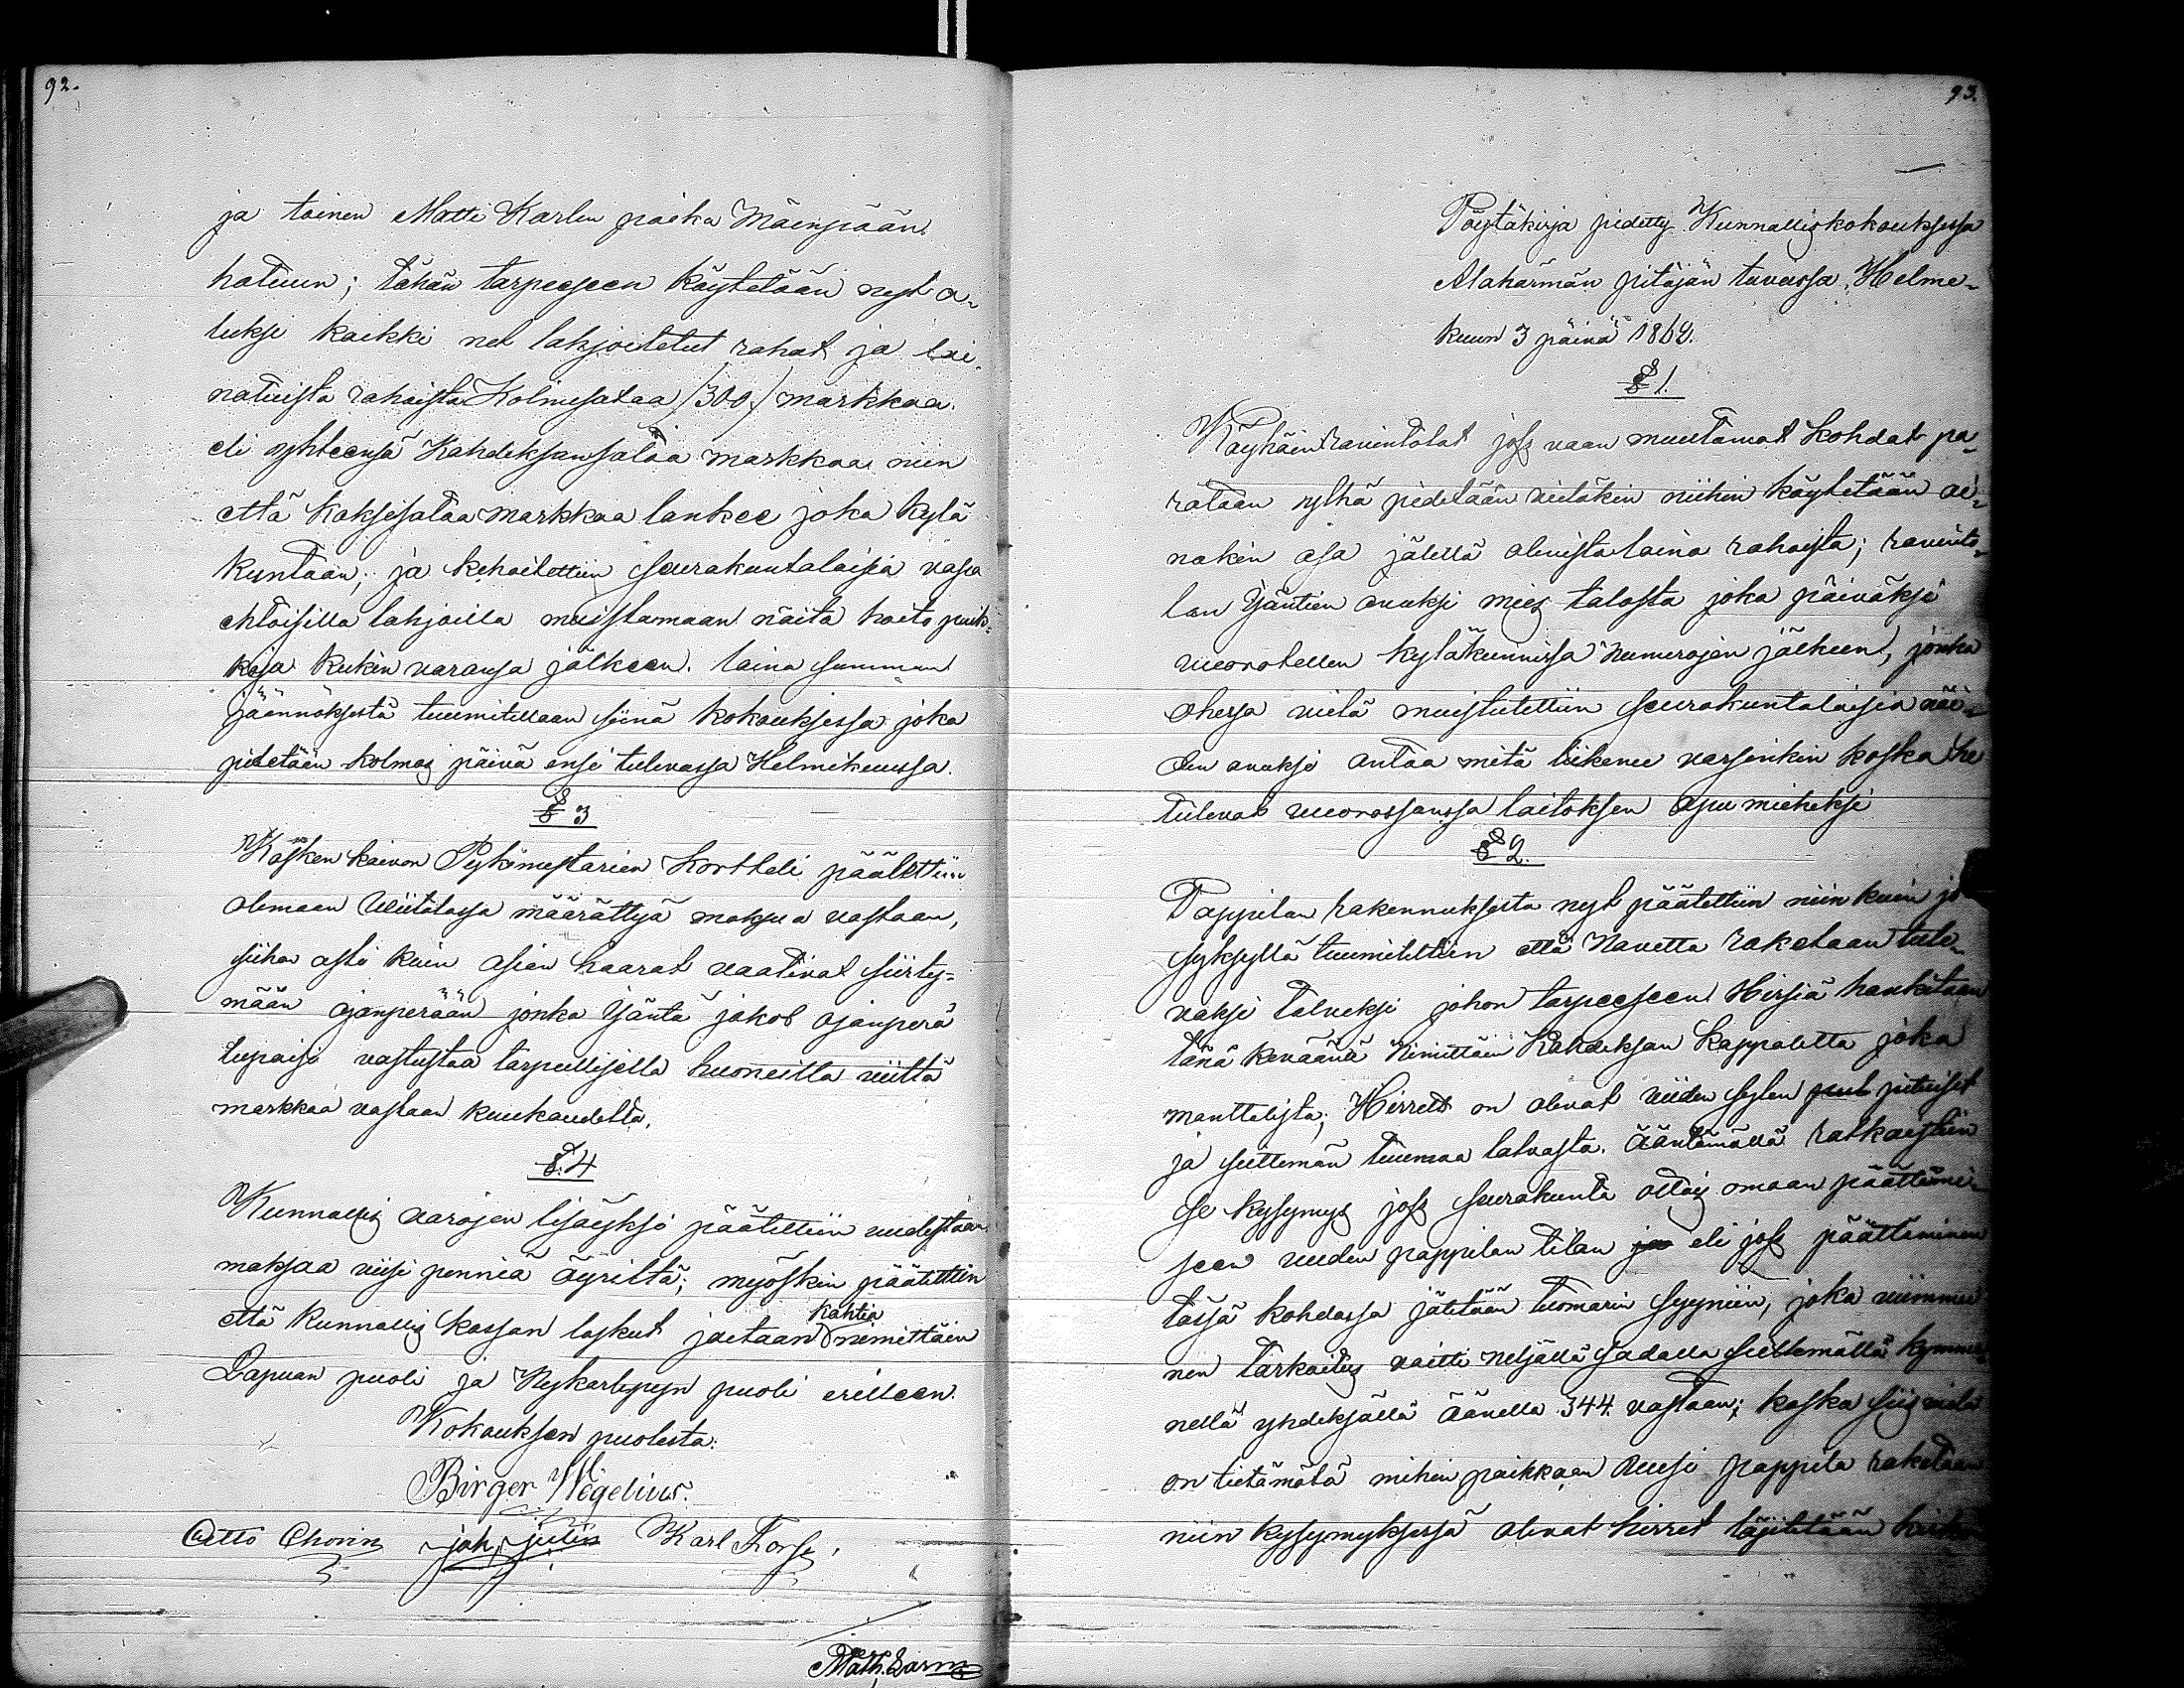 92.
ja toinen Matti Karlin poika Mäenpään
hatuun; tähän tarpeeseen käytetään nyt a-
luksi kaikki ne lahjoitetut rahat ja lai-
natuista rahoista Kolmesataa /300/ markkaa
eli yhteensä Kahdeksansataa markkaa niin
että Kaksisataa markkaa lankee joka kylä
kuntaan; ja kehoitettiin seurakuntalaisia vapa
ehtoisilla lahjoilla muistamaan näitä hoito paik-
koja kukin varansa jälkeen. laina summan
jäännöksestä tuumitellaan siinä kokouksessa joka
pidetään kolmas päivä ensi tulevassa Helmikuussa.
§ 3
Kosken kaivon Pytinmestarien kortteli päätettiin
olemaan Wiitalassa määrättyä maksua vastaan,
siihen asti kuin asian haarat vaativat siirty=
mään ojanperään jonka Isäntä jakob ojanperä
lupaisi vastustaa tarpeellisella huoneilla viittä
markkaa vastaan kuukaudelta.
§. 4
Kunnallis varojen lisäyksi päätettiin uudestaan
maksaa viisi penniä äyriltä; myöskin päätettiin
että Kunnallis kassan laskut jaetaan kahtia nimittäin
Lapuan puoli ja Nykarlepyn puoli erilleen.
Kokouksen puolesta:
Birger Wegelius.
Otto Chorin joh, julin Karl Fors,
Math, Larm
93.
Pöytäkirja pidetty Kunnalliskokouksessa
Alahärmän pitäjän tuvassa, Helme-
kuun 3 päivä 1868.
§ 1.
Köyhäin ravintolat joss vaan muutamat kohdat pa-
rataan yltä pidetään vieläkin niihin käytetään ai-
nakin osa jälellä olevista laina rahoista; ravinto-
lan Isäntien avuksi mies talosta joka päiväksi
vuorotellen kyläkunnissa Numerojen jälkeen, jonka
ohessa vielä muistutettiin seurakuntalaisia näi-
den avuksi antaa mitä liikenee varsinkin koska he
tulevat vuorossansa laitoksen apu miehiksi
§ 2.
Pappilan rakennuksesta nyt päätettiin niin kuin jo
syksyllä tuumittiin että Navetta raketaan tule-
vaksi talveksi johon tarpeeseen Hirsiä hankitaan
tänä keväänä Nimittäin Kahdeksan Kappaletta joka
manttalista; Hirret on olevat viiden sylen puut pituiset
ja seitsemän tuumaa latvasta. Ääntämällä ratkaistiin
se kysymys joss seurakunta ottais omaan päättämi-
seen uuden pappilan tilan ja eli joss päättäminen
tässä kohdassa jätetään tuomarin syyniin, joka viimmei
nen tarkoitus voitti neljällä sadalla seitsemällä kymme
nellä yhdeksällä äänellä 344 vastaan; koska siis vielä
on tietämätä mihin paikkaan Uusi pappila raketaan
niin kysymyksessä olevat hirret läjitetään kirko